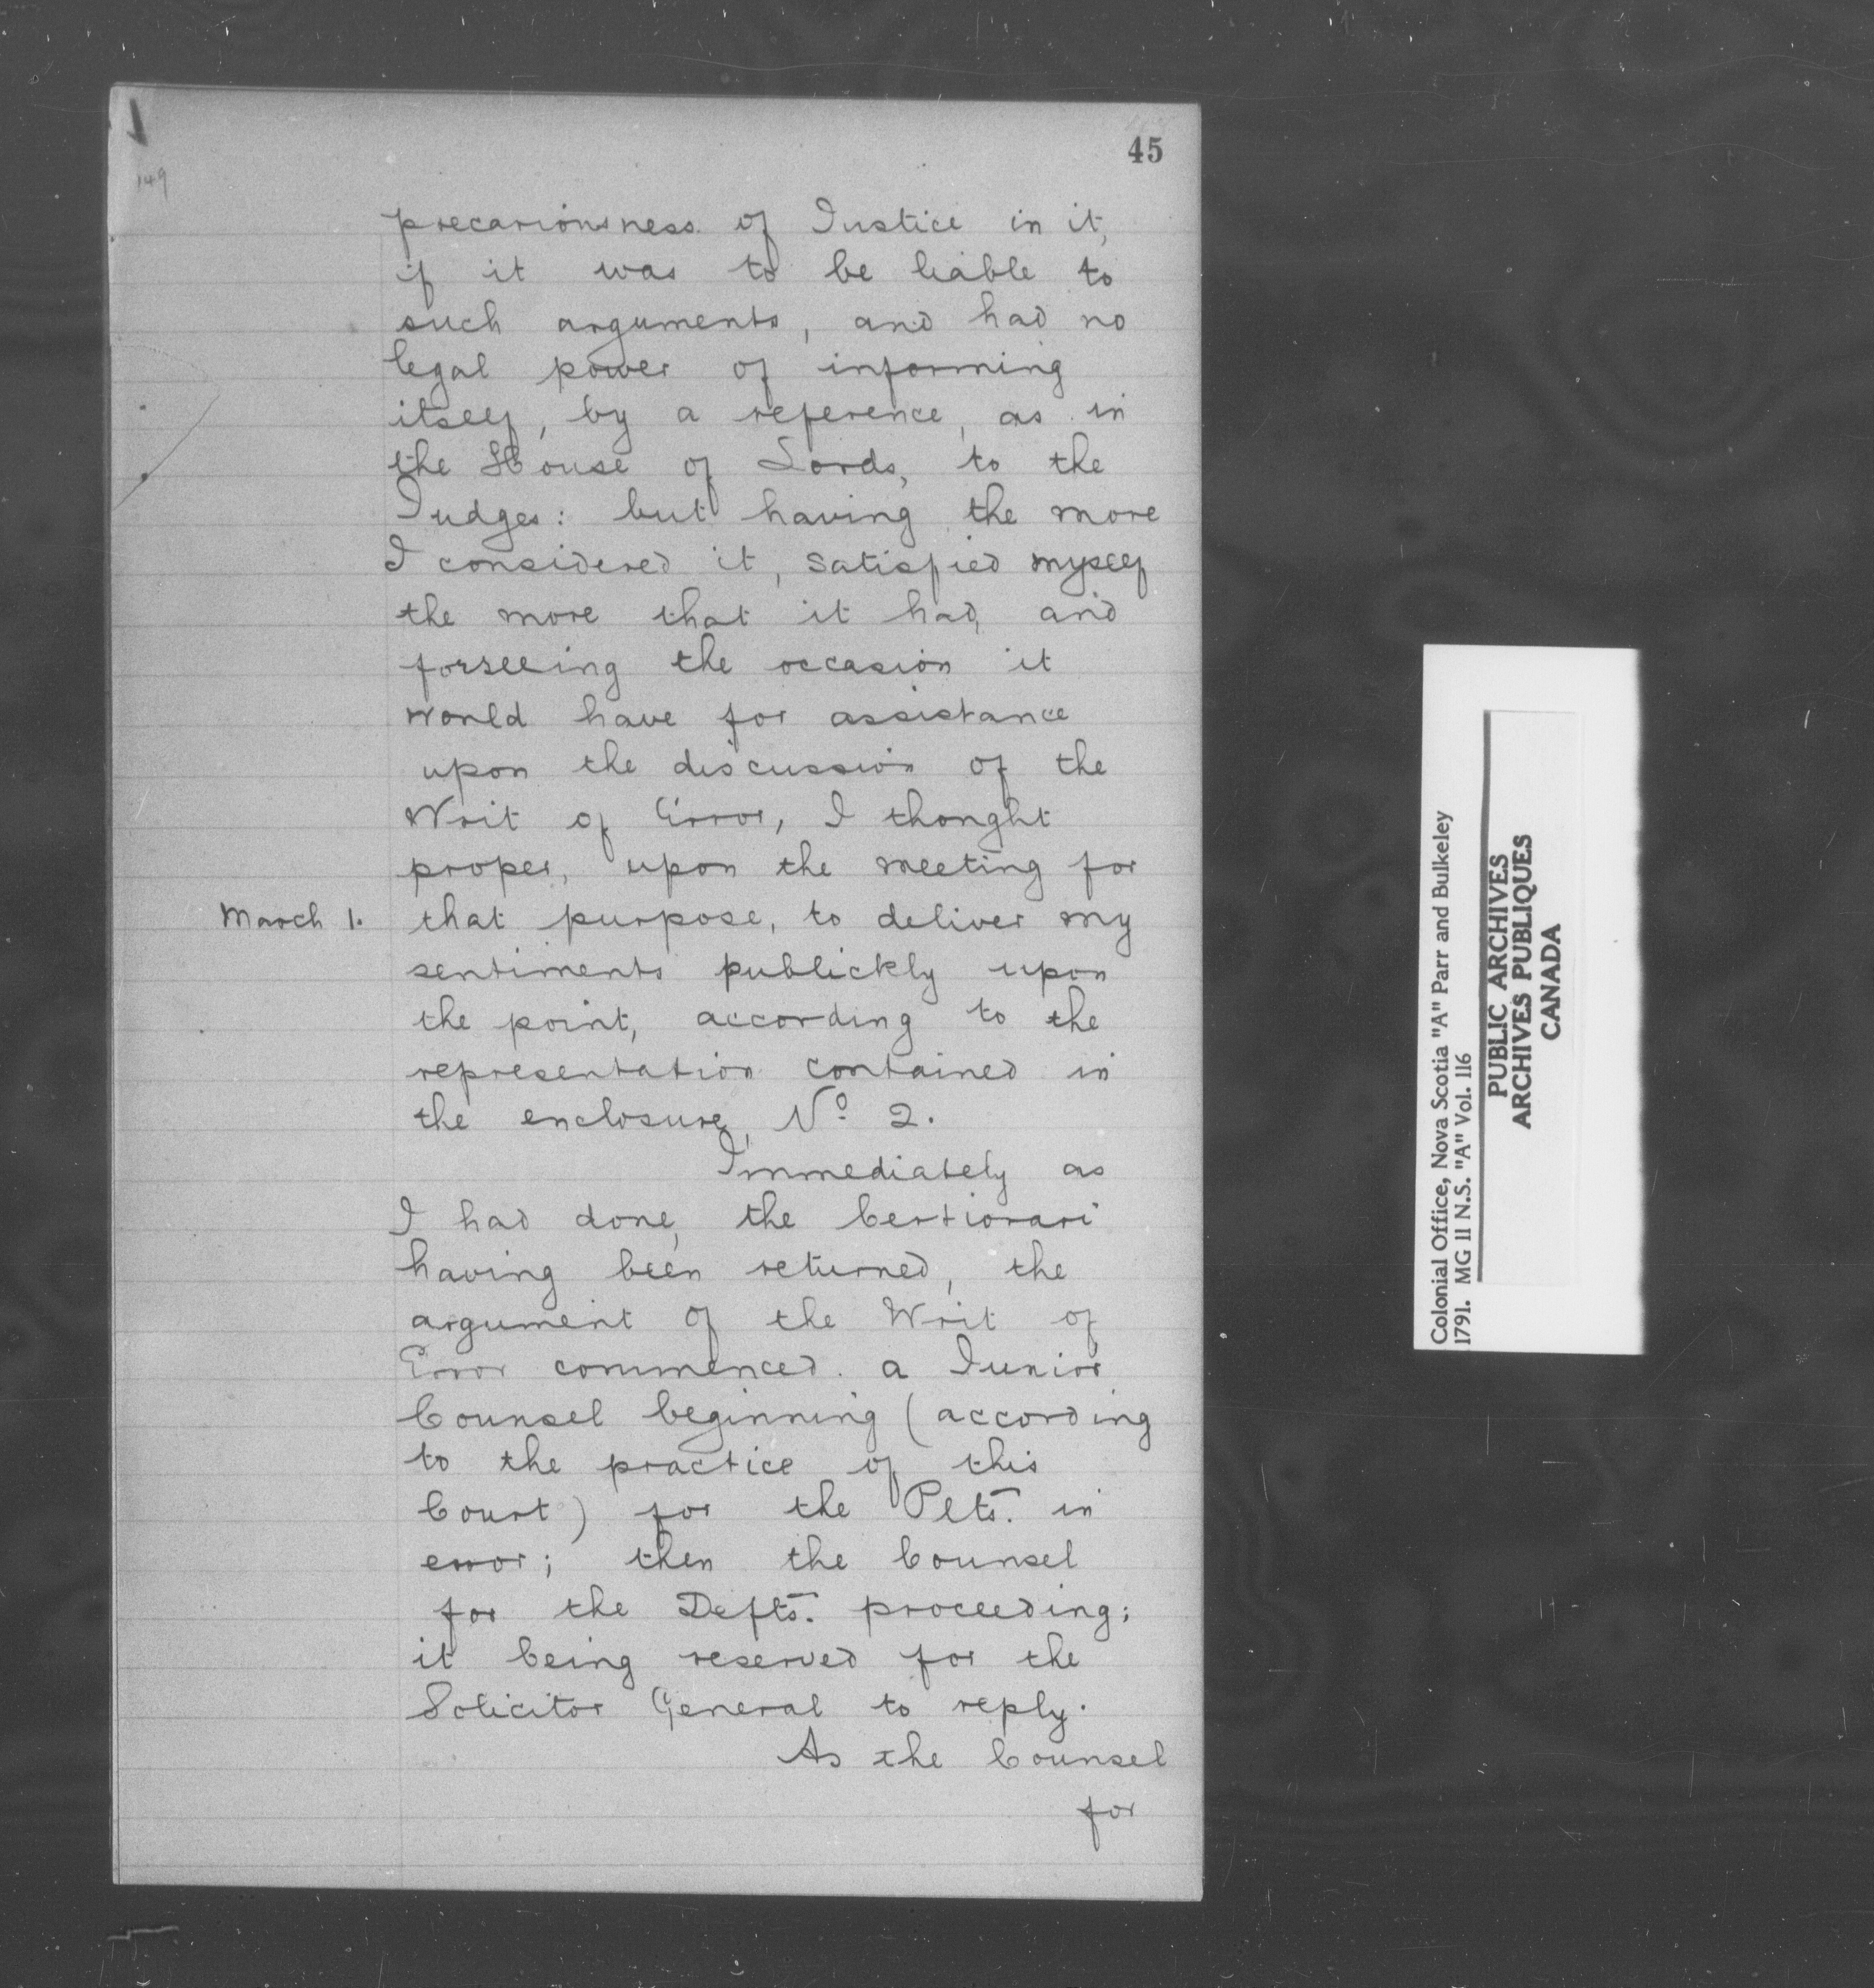 45
149
precariousness of Justice in it,
if it was to be liable to
such arguments, and had no
legal power of informing
itself, by a reference, as in
the House of Lords, to the
Judges: but having the more
I considered it, satisfied myself
the more that it had, and
forseeing the occasion it
would have for assistance
upon the discussion of the
Writ of Error, I thought
proper, upon the meeting for
March 1. that purpose, to deliver my
sentiments publickly upon
the point, according to the
representation contained in
the enclosure, No. 2.
Immediately as
I had done, the Certiorari
having been returned, the
argument of the Writ of
Error commenced. a Junior
Counsel beginning (according
to the practice of this
Court) for the Plts. in
error; then the Counsel
for the Defts. proceeding;
it being reserved for the
Solicitor General to reply.
As the Counsel
for
Colonial Office, Nova Scotia "A" Parr and Bulkeley
1791. MG 11 N.S. "A" Vol. 116
PUBLIC ARCHIVES
ARCHIVES PUBLIQUES
CANADA